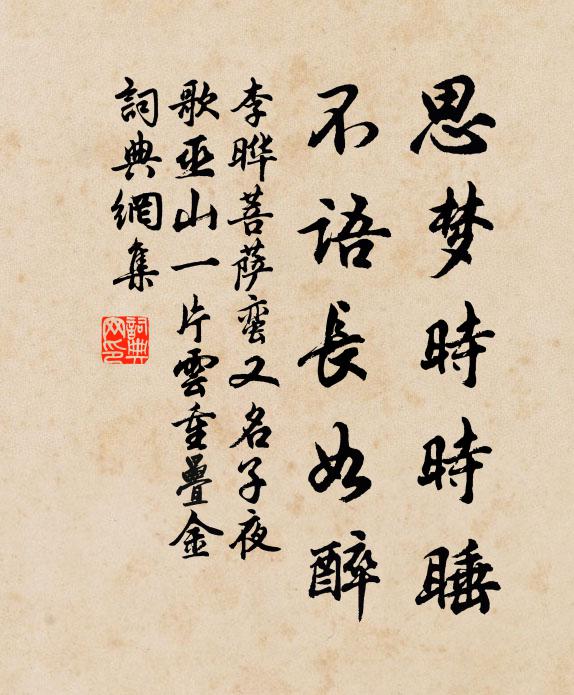 思梦時時睡
不語長如醉
李晔菩萨蛮又名子夜
歌巫山一片雲重疊金
詞典網集
詞典
网印